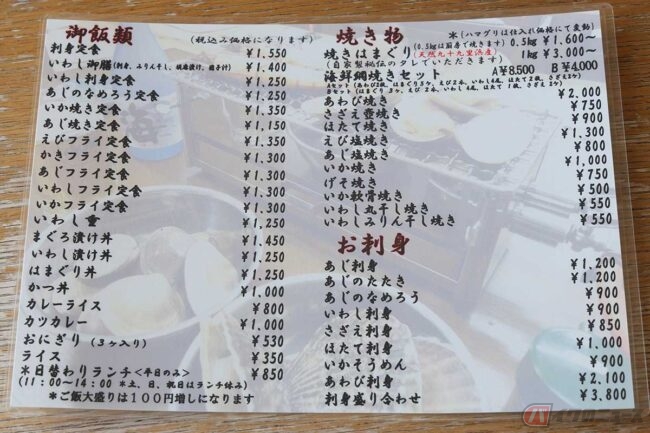 御飯類 (税込み価格になります)
刺身定食 ¥1,550
いわし御膳(刺身、みりん干し、胡麻漬け、団子汁) ¥1,400
いわし刺身定食 ¥1,250
あじのなめろう定食 ¥1,250
いか焼き定食 ¥1,350
あじ焼き定食 ¥1,150
えびフライ定食 ¥1,350
かきフライ定食 ¥1,300
あじフライ定食 ¥1,300
いわしフライ定食 ¥1,300
いかフライ定食 ¥1,300
いわし重 ¥1,250
まぐろ漬け丼 ¥1,450
いわし丼 ¥1,250
はまぐり丼 ¥1,250
かつ丼 ¥1,000
カレーライス ¥800
カツカレー ¥1,000
おにぎり (3ヶ入り) ¥530
ライス ¥350
*日替わりランチ<平日のみ> ¥850
(11:00~14:00 *土、日、祝日はランチ休み)
*ご飯大盛りは100円増しになります
焼き物 *(ハマグリは仕入れ価格にて変動)
(0.5kgは厨房で焼きます) 0.5kg ¥1,600~
焼きはまぐり(天然九十九里浜産) 1kg ¥3,000~
(自家製秘伝のタレでいただきます)
海鮮網焼きセット A¥8,500 B¥4,000
あわび焼き ¥2,000
さざえ壺焼き ¥750
ほたて焼き ¥900
えび塩焼き ¥1,300
あじ塩焼き ¥800
いか焼き ¥1,000
げそ焼き ¥750
いか軟骨焼き ¥500
いわし丸干し焼き ¥550
いわしみりん干し焼き ¥550
お刺身
あじ刺身 ¥1,200
あじのたたき ¥1,200
あじのなめろう ¥900
いわし刺身 ¥900
さざえ刺身 ¥850
ほたて刺身 ¥1,000
いかそうめん ¥900
あわび刺身 ¥2,100
刺身盛り合わせ ¥3,800